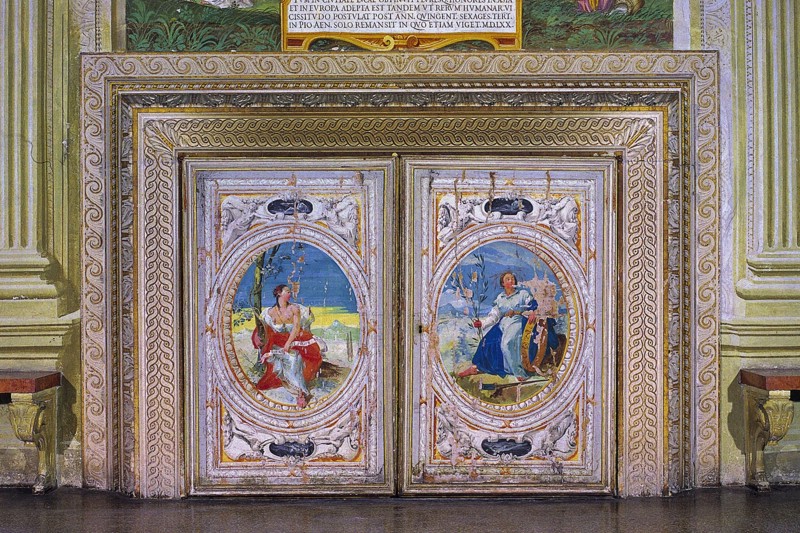 ET IN EVROPA ADEPTA EST TANDEM VT RERVM HVMANAR. VI
CISSITVDO POSTVLAT POST ANN. QVINGENT. SEXAGES. TERT.
IN PIO AEN. SOLO REMANSIT IN QVO ETIAM VIGET. M.D.LXX.